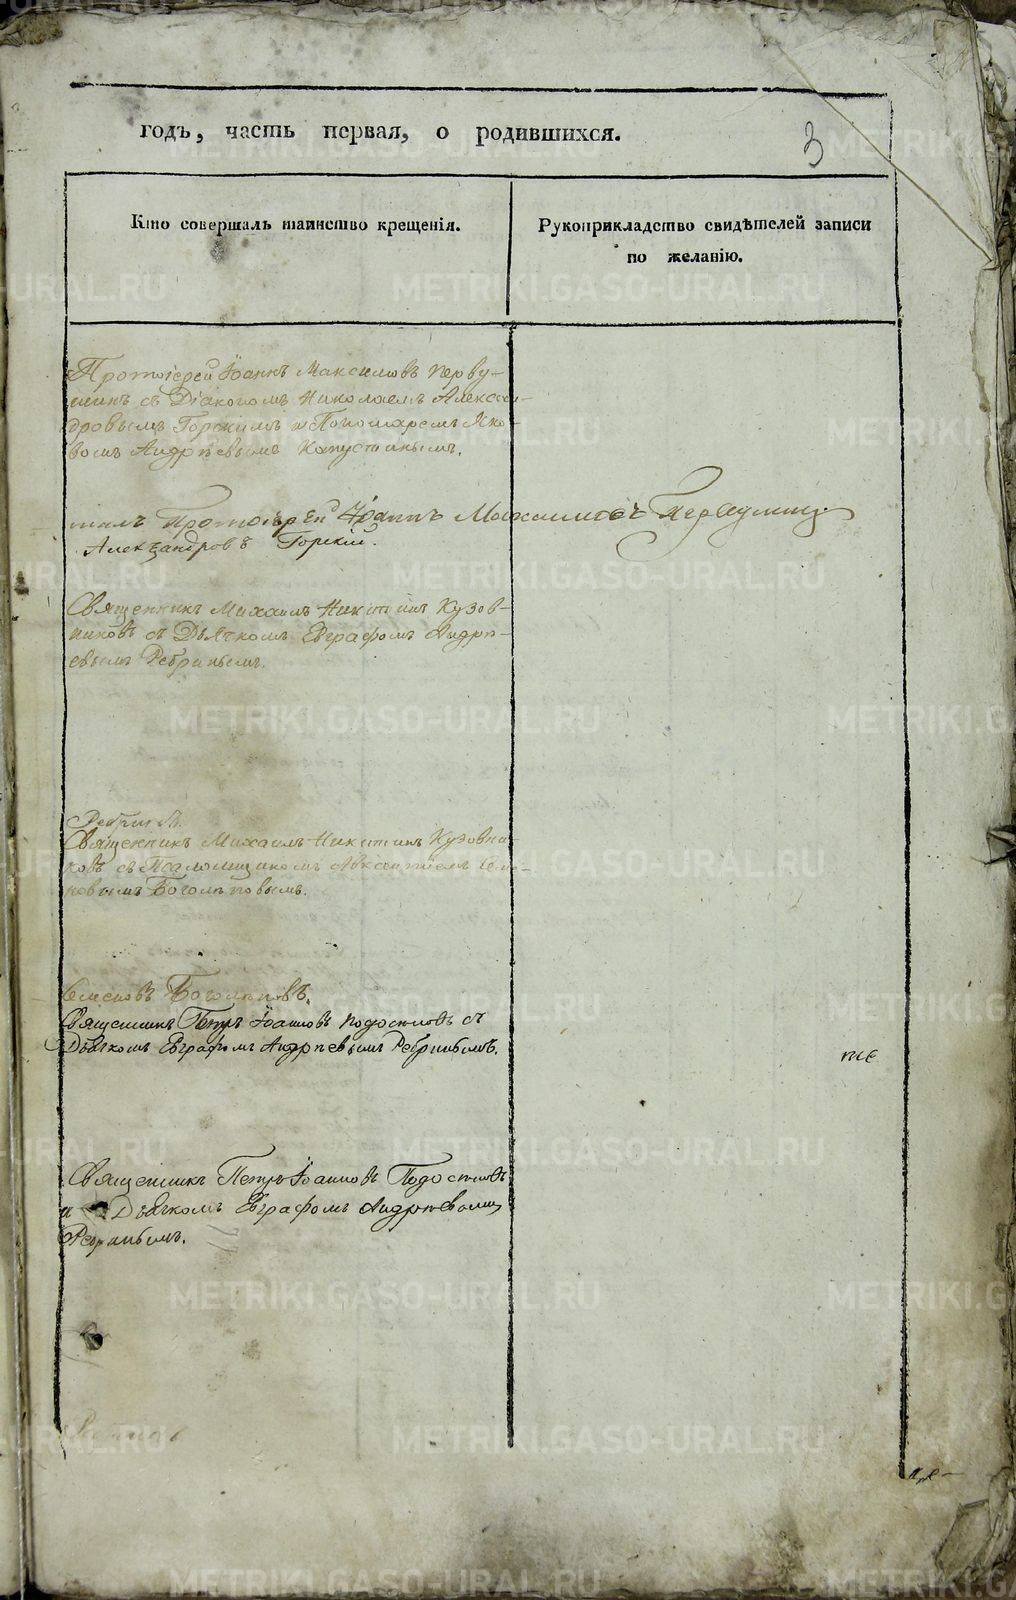 годъ, часть первая, о родившихся.
3
Кто совершалъ таинство крещенія.
Рукоприкладство свидѣтелей записи
по желанію.
Протоіерей Іоаннъ Максимовъ Перву-
шинъ съ Діакономъ Николаемъ Алексан-
дровымъ Горскимъ и Пономаремъ Яко-
вомъ Андрѣевымъ Капустинымъ.
Протоіерей Іоаннъ Максимовъ Первушинъ
Александровъ Горскій.
Священникъ Михаилъ Никитинъ Кузов-
никовъ съ Дьячкомъ Евграфомъ Андрѣ-
евымъ Ребринымъ.
Ребринъ.
Священникъ Михаилъ Никитинъ Кузовни-
ковъ съ Псаломщикомъ Авксентіемъ Семе-
новымъ Боголѣповымъ.
Семеновъ Боголѣповъ.
Священникъ Петръ Іоанновъ Подосеновъ съ
Дьячкомъ Евграфомъ Андрѣевымъ Ребринымъ.
Священникъ Петръ Іоанновъ Подосеновъ
и Дьячкомъ Евграфомъ Андрѣевымъ
Ребринымъ.
METRIKI.GASO-URAL.RU